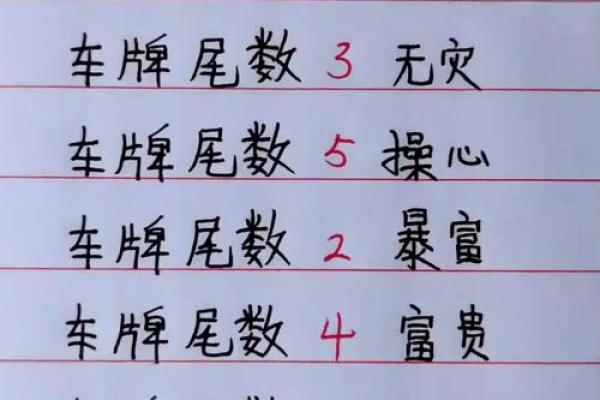 车牌尾数 3 无灾
车牌尾数 5 操心
车牌尾数 2 暴富
车牌尾数 4 富贵